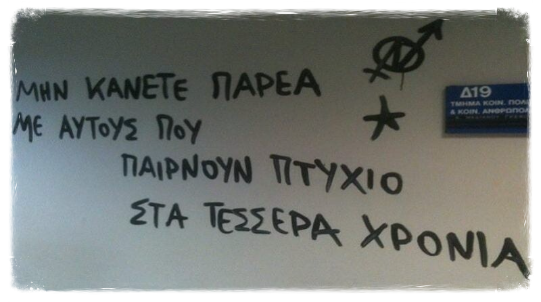 ΜΗΝ ΚΑΝΕΤΕ ΠΑΡΕΑ
ΜΕ ΑΥΤΟΥΣ ΠΟΥ
ΠΑΙΡΝΟΥΝ ΠΤΥΧΙΟ
ΣΤΑ ΤΕΣΣΕΡΑ ΧΡΟΝΙΑ
Δ19
ΤΜΗΜΑ ΚΟΙΝ. ΠΟΛΙ
& ΚΟΙΝ. ΑΝΘΡΩΠΟΛ